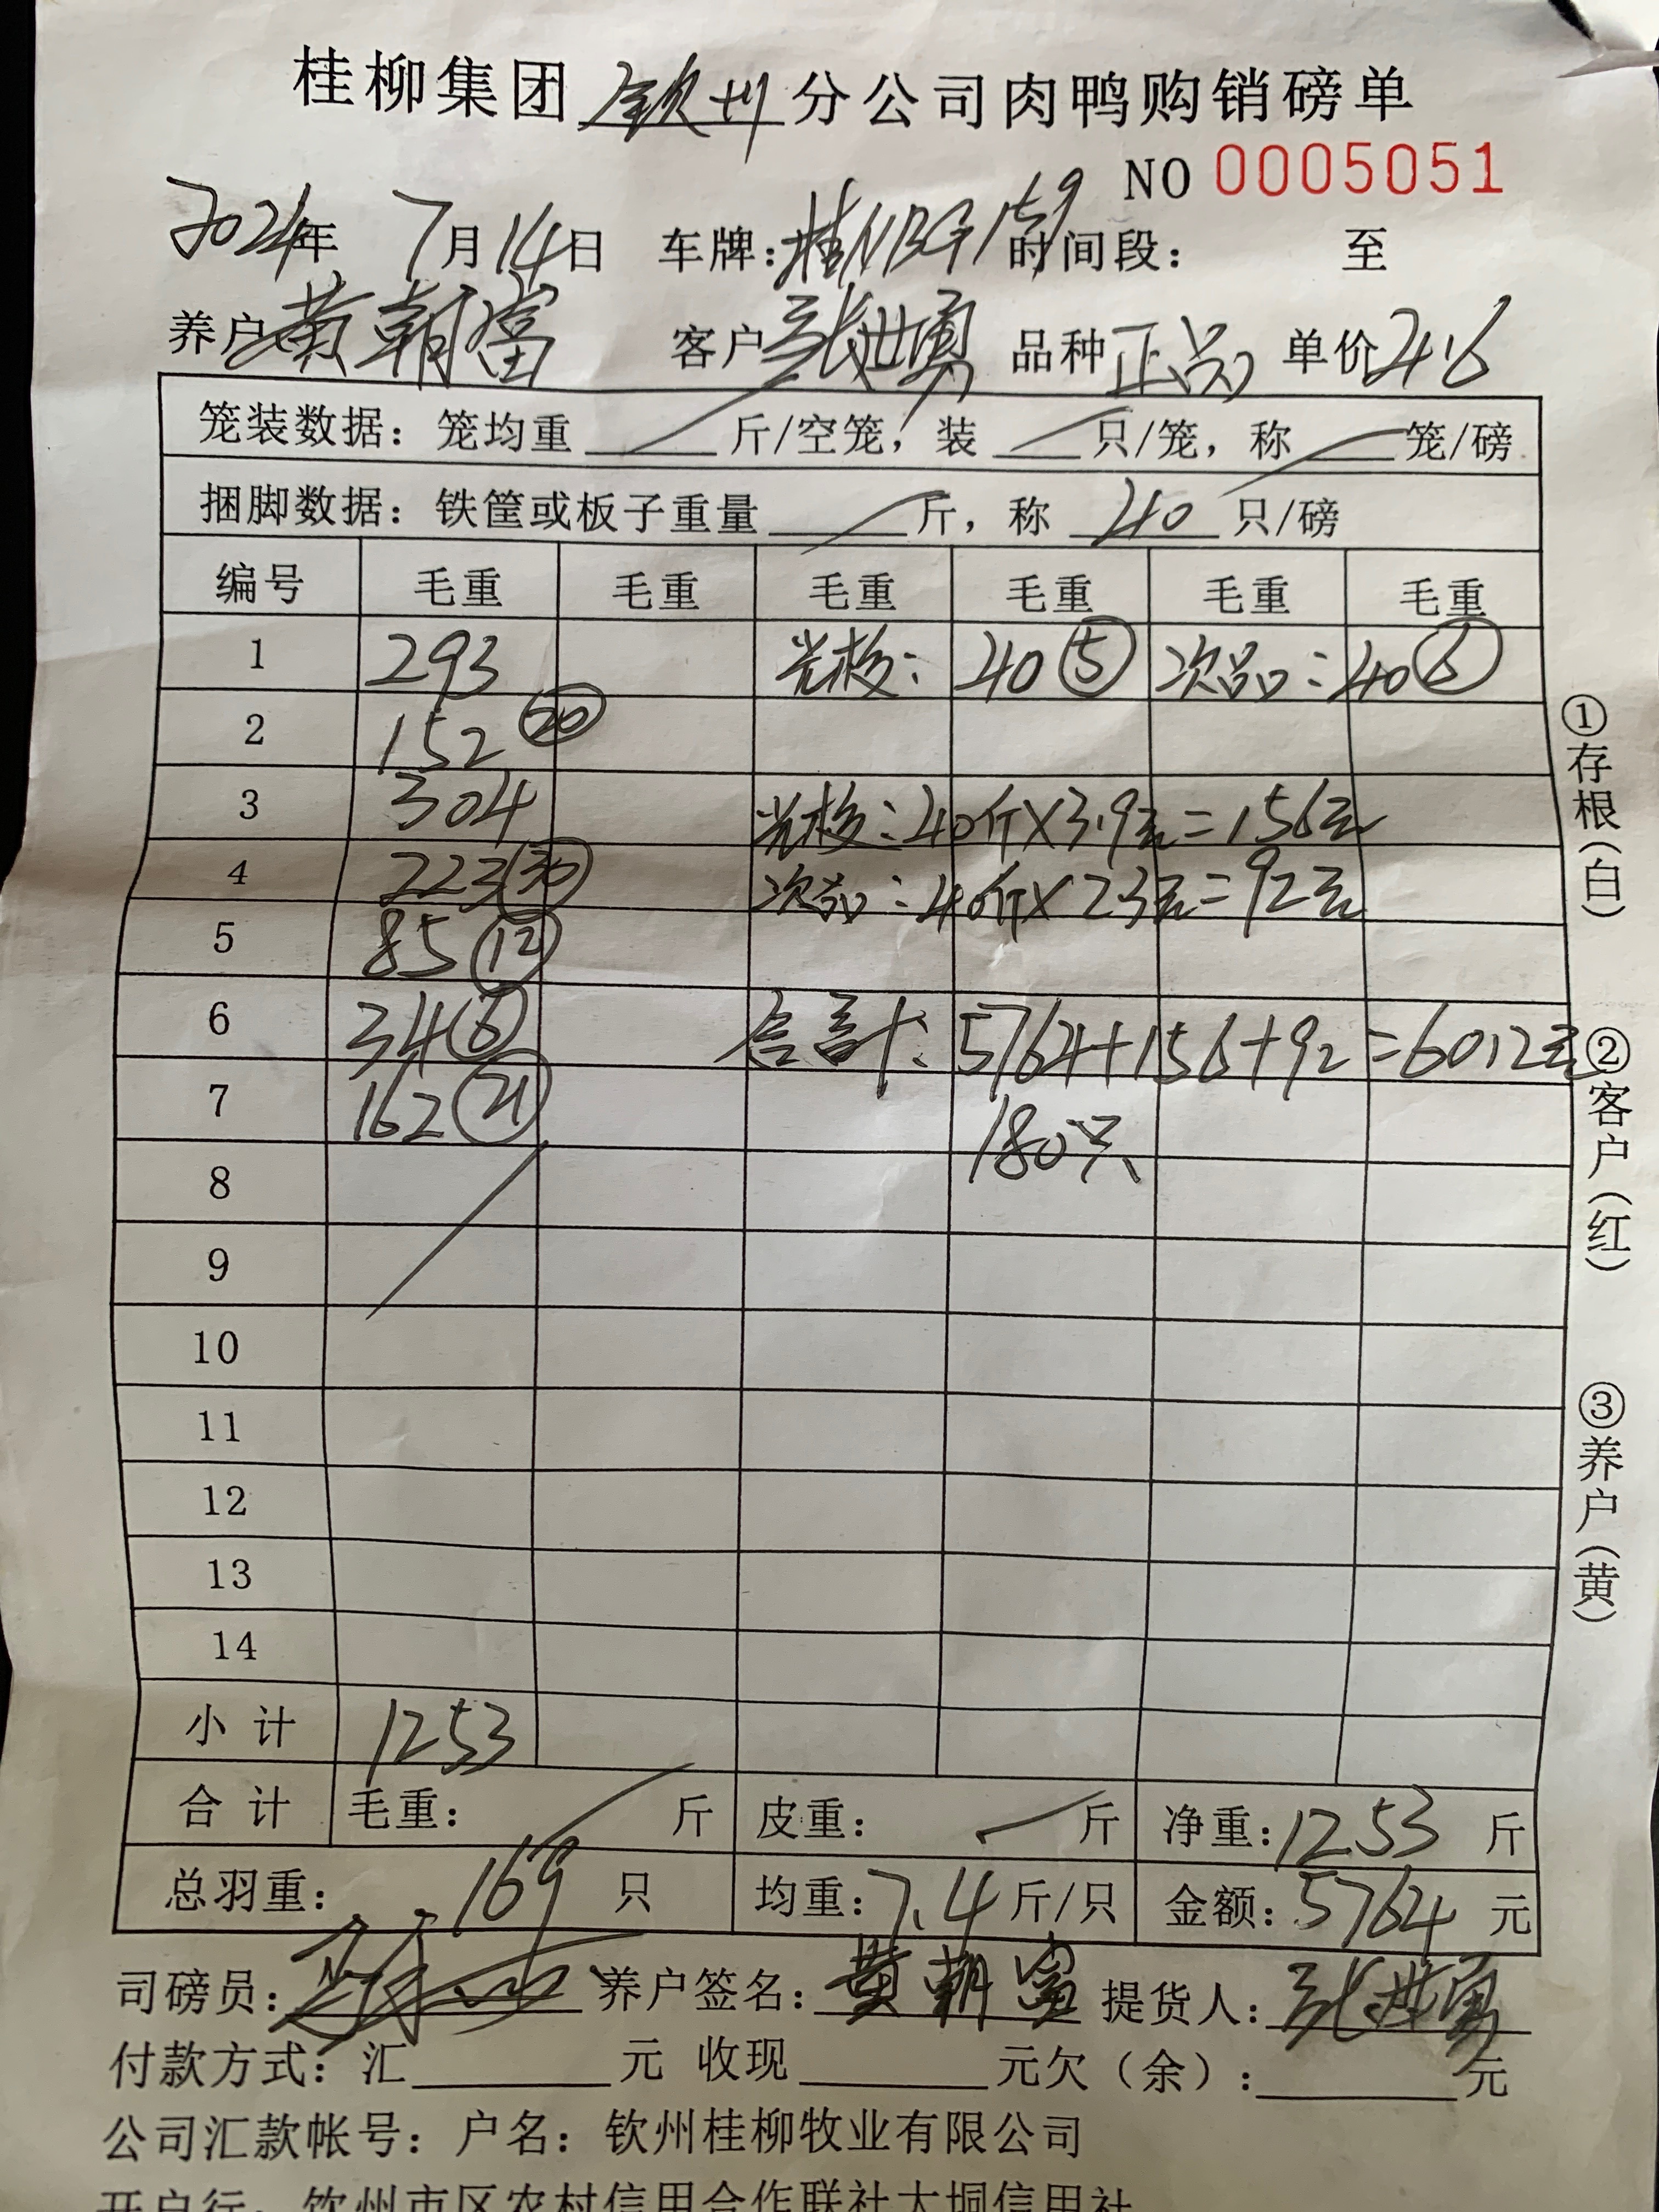 桂柳集团钦州分公司肉鸭购销磅单
NO 0005051
2024年 7月14日 车牌:桂NBG159 时间段: 至
养户黄朝富 客户张世勇 品种正品 单价4.6
笼装数据: 笼均重 斤/空笼, 装 只/笼, 称 笼/磅
捆脚数据: 铁筐或板子重量 斤, 称 40 只/磅
编号 毛重 毛重 毛重 毛重 毛重 毛重
1 293 光板: 40 ⑤ 次品: 40 ⑥
2 152 ⑳
3 304 光板: 40斤×3.9元=156元
4 223 ㉚ 次品: 40斤×2.3元=92元
5 85 ⑫
6 34 ⑥ 合计: 5764+156+92=6012元
7 162 ㉑ 180只
8
9
10
11
12
13
14
小计 1253
合计 毛重: 斤 皮重: 斤 净重: 1253 斤
总羽重: 169 只 均重: 7.4 斤/只 金额: 5764 元
①存根(白)
②客户(红)
③养户(黄)
司磅员: 养户签名: 黄朝富 提货人: 张世勇
付款方式: 汇 元 收现 元欠(余): 元
公司汇款帐号: 户名: 钦州桂柳牧业有限公司
开户行: 钦州市区农村信用合作联社大垌信用社